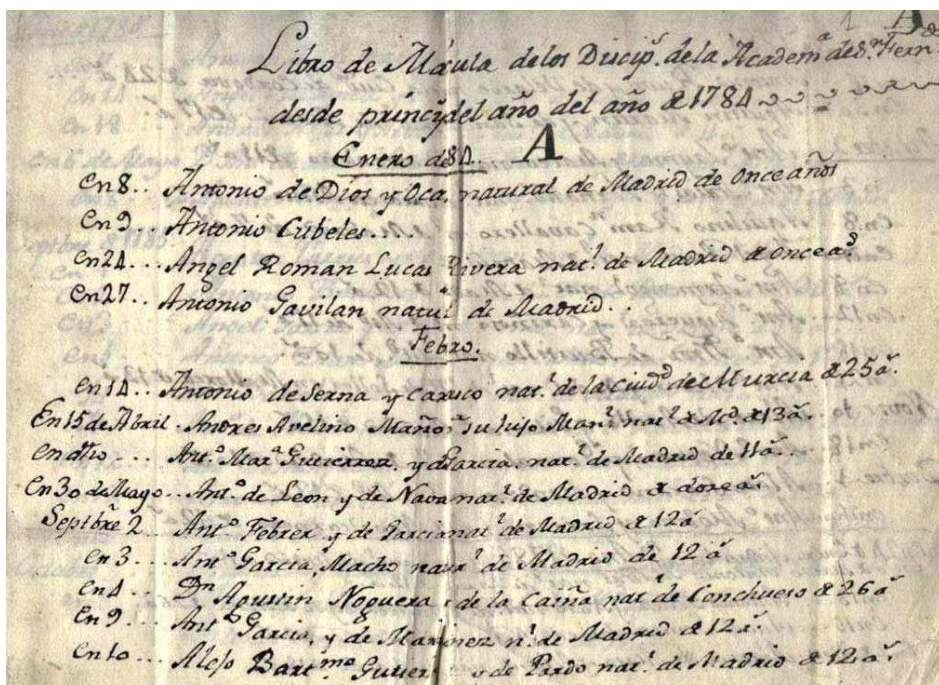 A
Libro de Mácula de los Discip.ˢ de la Academ.ª de S.ⁿ Fern
desde princip del año del año de 1784
Enero de 84.. A
En 8.. Antonio de Dios y Oca, natural de Madrid de Once años
En 9.. Antonio Cubeles....
En 24... Angel Roman Lucas Rivera nat.ˡ de Madrid de once a.ˢ
En 27.. Antonio Gavilan natu.ˡ de Madrid..
Febro.
En 14.. Antonio de Serna y Carasco nat.ˡ de la Ciud.ᵈ de Murcia de 25 a.ˢ
En 15 de Abril. Andres Avelino su hijo Man.ˡ nat.ˡ de M.ᵈ de 13 a.ˢ
En dho... Ant.º Mar.ª Gutierrez, y de Garcia, nat.ˡ de Madrid de 11 a.ˢ
En 30 de Mayo.. Ant.º de Leon y de Nava nat.ˡ de Madrid de doze a.ˢ
Septbre 2.. Ant.º Febrer y de Garcia nat.ˡ de Madrid de 12 a.ˢ
En 3... Ant.º Garcia, Macho natur.ˡ de Madrid de 12 a.ˢ
En 4.. D.ⁿ Agustin Noguera de la nat.ˡ de de 26 a.ˢ
En 9... Ant.º Garcia, y de Martinez n.ˡ de Madrid de 12 a.ˢ
En 10... Alejo Bart.ᵐᵉ Gutier y de Pardo nat.ˡ de Madrid de 12 a.ˢ